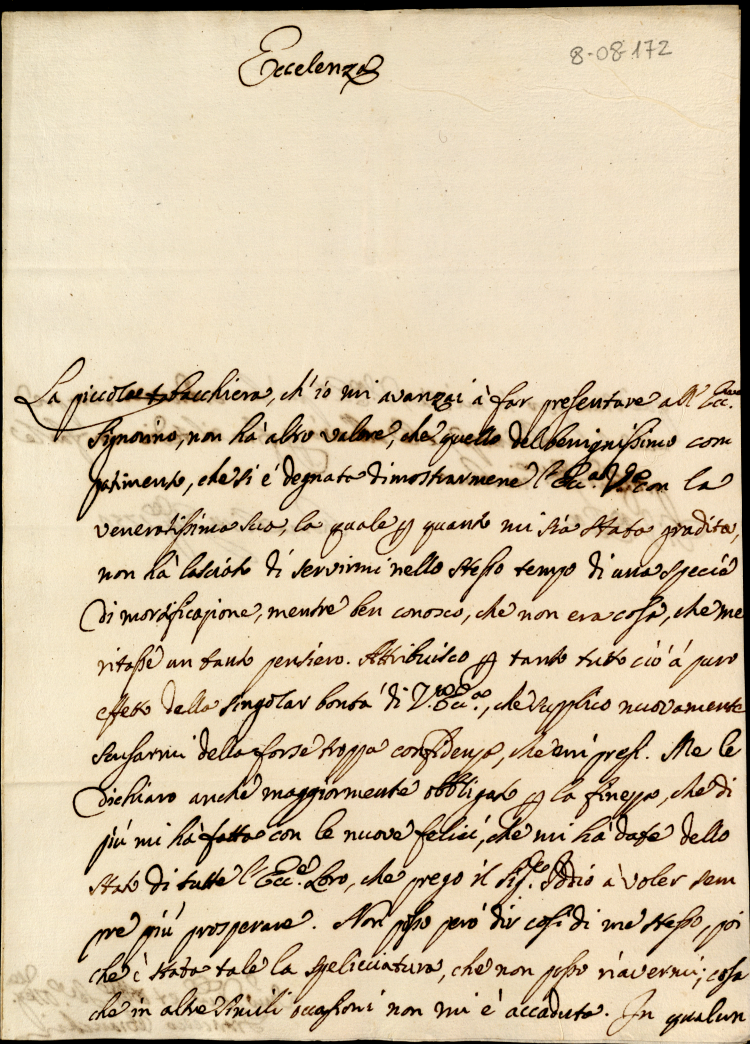 Eccelenza
8-08-172
La piccola tabacchiera, ch'io mi avanzai à far presentare all' Ecc.
Signorino, non hà altro valore, che quello del benignissimo com
patimento, che si è degnata dimostrarmene l'Ecc.a V.ra con la
veneratissima sua, la quale p quanto mi sia stata gradita,
non hà lasciato di servirmi nello stesso tempo di una specie
di mortificazione, mentre ben conosco, che non era cosa, che me
ritasse un tanto pensiero. Attribuisco p tanto tutto ciò à puro
effetto della singolar bontà di V.ra Ecc.a, che supplico nuovamente
scusarmi della forse troppa confidenza, che mi presi. Me le
dichiaro anche maggiormente obbligato p la finezza, che di
più mi hà fatta con le nuove felici, che mi hà date dello
stato di tutte l'Ecc.e Loro, che prego il Sig.re Iddio à voler sem
pre più prosperare. Non posso però dir così di me stesso, poi
che è stata tale la spelicciatura, che non posso riavermi; cosa
che in altre simili occasioni non mi è accaduta. In qualun